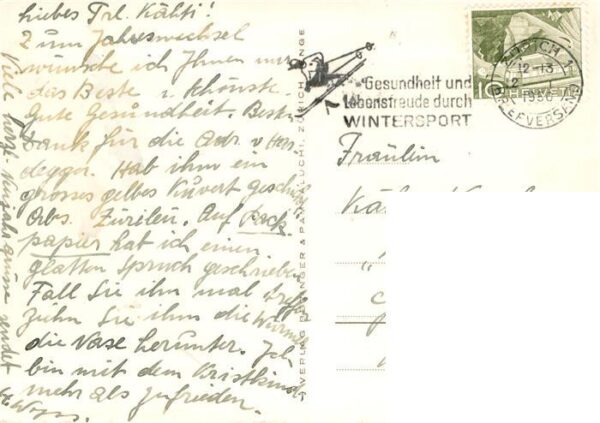 liebes Frl. Käthi!
Zum Jahreswechsel
wünsche ich Ihnen nur
das Beste u. Schönste.
Gute Gesundheit. Best.
dank für die Adr. v Hers
degger. Hab ihm ein
grosses gelbes Kuvert geschickt
Abs. Zürileu. Auf Pack
papier hat ich einen
glatten Spruch geschrieben
Fall Sie ihn mal treffen
ziehn Sie ihm die Würmer
die Nase herunter. Ich
bin mit dem Kristkind
mehr als zufrieden.
Viele herzl. Neujahrgrüsse sendet
VERLAG & PAVALUCHI, ZÜRICH
Gesundheit und
Lebensfreude durch
WINTERSPORT
ZÜRICH 1
12-13
1956
BRIEFVERSAND
10 HELVETIA
Fräulein